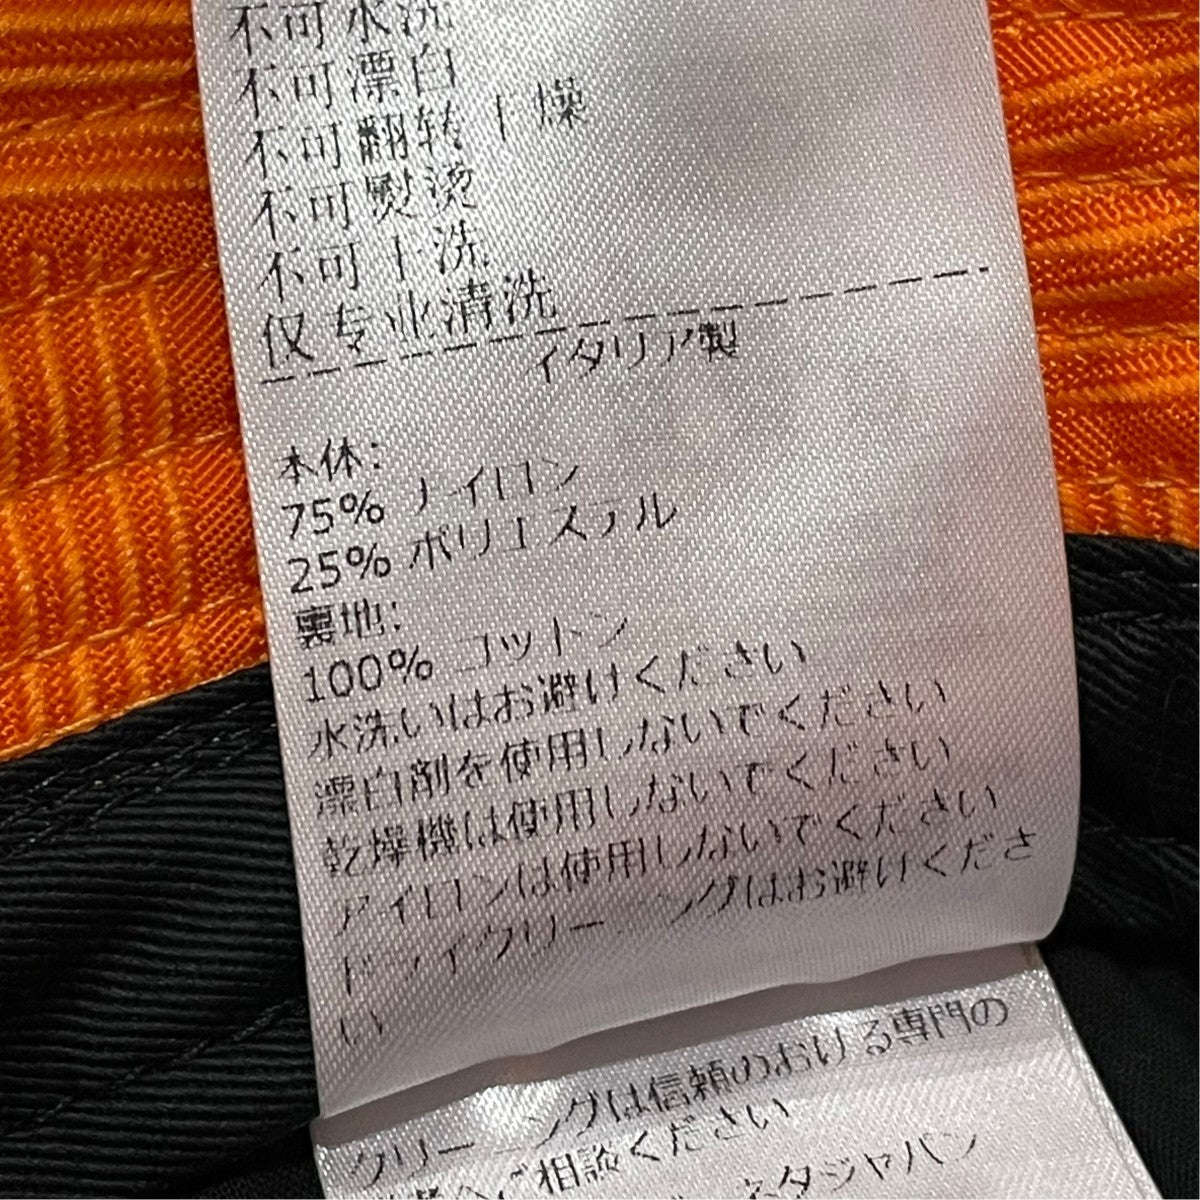 不可水洗
不可漂白
不可翻转干燥
不可熨烫
不可干洗
仅专业清洗
イタリア製
本体:
75% ナイロン
25% ポリエステル
裏地:
100% コットン
水洗いはお避けください
漂白剤を使用しないでください
乾燥機は使用しないでください
アイロンは使用しないでください
ドライクリーニングはお避けくださ
い
クリーニングは信頼のおける専門の
ご相談ください
タジャパン